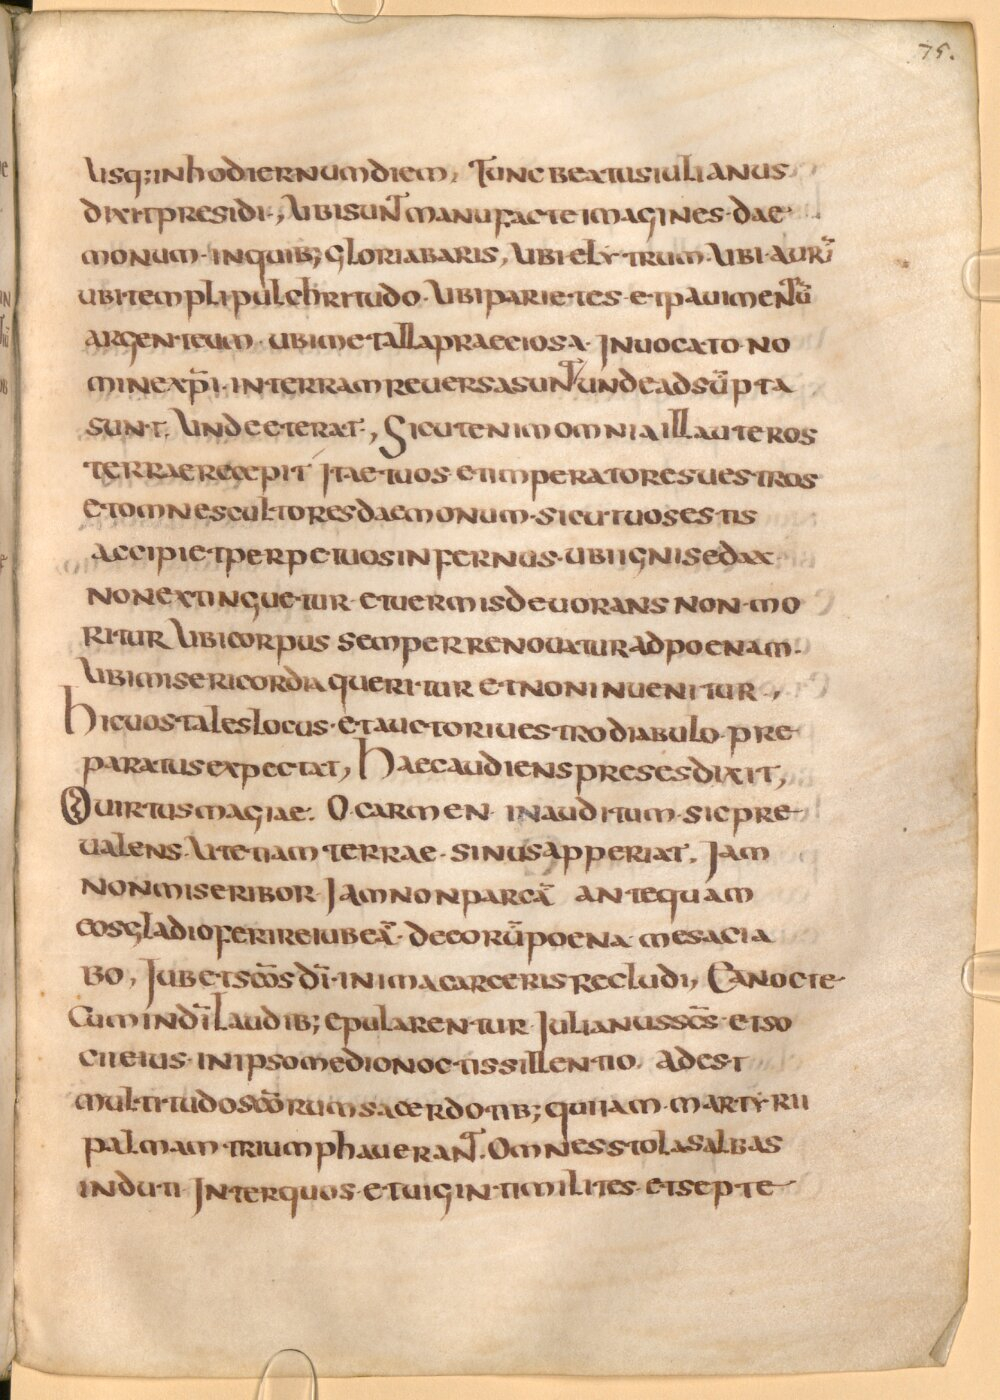 75.
usq; inhodiernumdiem, Tunc beatusiulianus
dixitpresidi, ubisunt manufacte imagines. dae
monum. inquib; gloriabaris, ubi elytrum. ubi auri
ubi templi pulchritudo. ubi parietes. et pauimentū
argenteum. ubi metalla praeciosa. Inuocato no
minexp̄i. interram reuersasunt undeadsūpta
sunt. undeeterat, Sicutenim omnia illa uteros
terrae recepit Itaetuos et imperatores uestros
etomnes cultores daemonum. sicut uos estis
accipiet perpetuos infernus. ubi ignis edax
non extinguetur. et uermis deuorans non mo
ritur ubi corpus semper renouatur ad poenam.
ubi misericordia queritur et non inuenitur,
hic uos tales locus. et auctori uestro diabulo pre
paratus expectat, haec audiens preses dixit,
O uirtus magiae. O carmen inauditum. sic pre
ualens ut etiam terrae. sinus apperiat. Iam
non miseribor Iam non parcā antequam
eos gladio ferire iubeā. de eorū poena me sacia
bo, Iubet sc̄os dī. in ima carceris recludi, Ea nocte
Cum in dī laudib; epularentur Iulianus sc̄s. et so
cii eius in ipso medio noctis sillentio. adest
multitudo sc̄orum sacerdotib; qui iam martyrii
palmam triumphauerant. Omnes stolas albas
induti Inter quos et uiginti milites. et septe